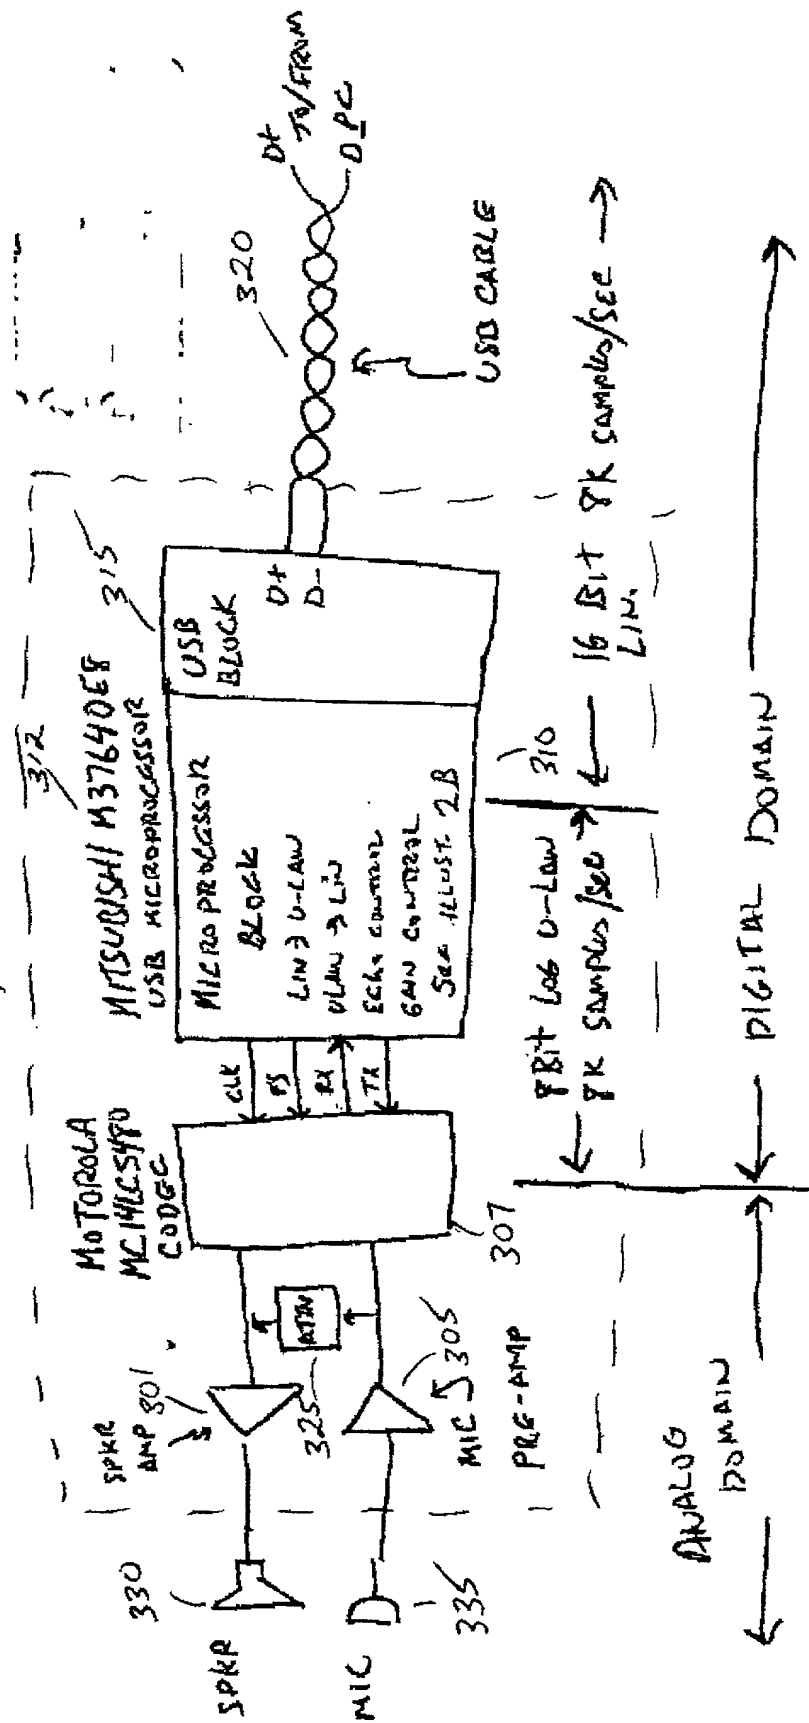 SPKR
330
MIC
335
SPKR
AMP
301
325
ATTN
MIC
305
PRE-AMP
MOTOROLA
MC14LC5480
CODEC
307
CLK
FS
RX
TX
312
MITSUBISHI M37640E8
USB MICROPROCESSOR
315
MICROPROCESSOR
BLOCK
LIN → U-LAW
ULAW → LIN
ECHO CONTROL
GAIN CONTROL
SEE ILLUST. 2B
USB
BLOCK
D+
D-
310
320
D+
TO/FROM
D-
PC
USB CABLE
8 Bit LOG U-LAW
8K SAMPLES/SEC
16 Bit 8K SAMPLES/SEC
LIN.
ANALOG
DOMAIN
DIGITAL DOMAIN